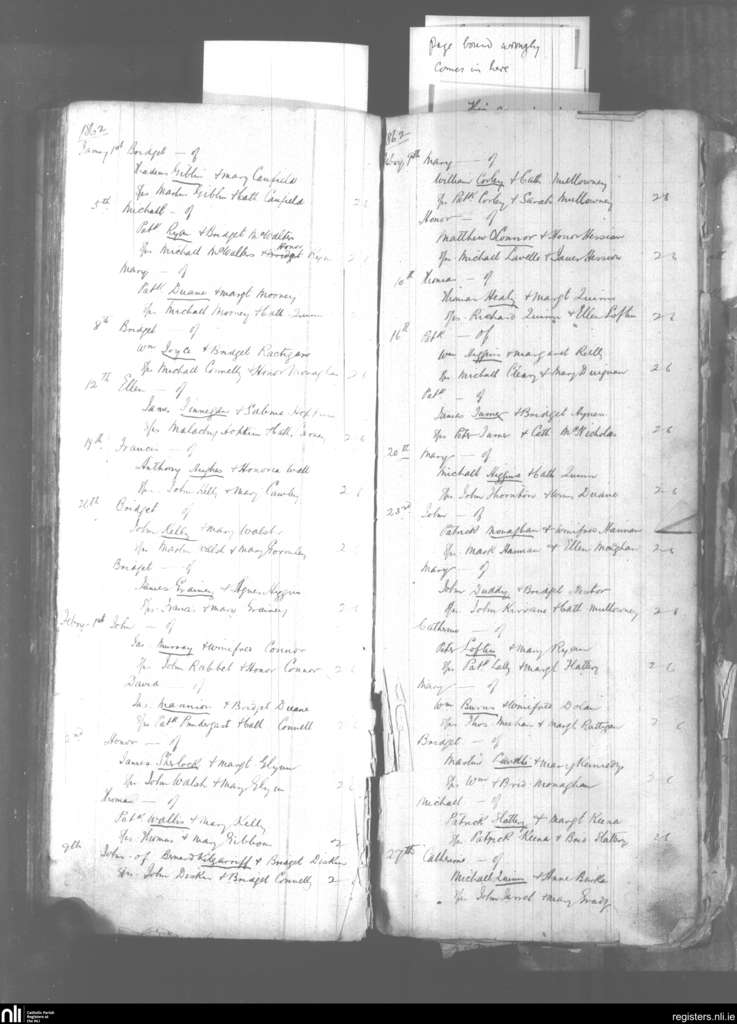 Page bound wrongly
comes in here
1862
Jany 1st Bridget — of
Giblin & Mary Canfield
Sps Martin Giblin & Cath Canfield
5th Michall — of
Patk Ryan & Bridget McWalter
Honor
Sps Michall McWalter & Bridget Ryan
Mary — of
Patk Duane & Margt Morney
Sps Michall Morney & Cath Quinn
8th Bridget of
Wm Joyce & Bridget Rattigan
Sps Michall Connelly & Honor Monaghan 2 6
12th Ellen — of
James Finnegan & Sabina Hopkin
Sps Malachy Hopkin & Cath 2 6
19th Francis — of
Anthony Hughes & Honoria Wall
Sps John Kelly & Mary Cawley 2 6
Bridget of
John Kelly & Mary Walsh
Sps Martin & Mary Gormley 2
Bridget — of
James Grainey & Agnes Higgins
Sps Francis & Mary Grainey 2 6
Febry 1st John — of
Jas Murray & Winifred Connor
Sps John Rabbet & Honor Connor 2 6
David — of
Jas Mannion & Bridget Duane
Sps Patk Pendergast & Cath Connell
Honor — of
James Sherlock & Margt Glynn
Sps John Walsh & Mary Glynn 2 6
Thomas — of
Patk Walter & Mary Kelly
Sps Thomas & Mary Gibbon 2
9th John — of Bernard Kilgarriff & Bridget Dockery
Sps John & Bridget Connelly 2
1862
Febry 9th Mary — of
William Corley & Cath Mullowney
Sps Patk Corley & Sarah Mullowney 2 6
Honor — of
Matthew O'Connor & Honor Hession
Sps Michall Lavelle & Hession 2 6
10th Thomas — of
Thomas Healy & Margt Quinn
Sps Richard Quinn & Ellen Loftus 2 6
16th Patk — of
Wm Higgins & Margaret Reilly
Sps Michall Cleary & Mary Duignan 2 6
Patk — of
James & Bridget
Sps Peter & Cath McNicholas 2 6
20th Mary — of
Michall Higgins & Cath Quinn
Sps John Thornton & Duane 2 6
23rd John — of
Patrick Monaghan & Winifred Hannan
Sps Mark Hannan & Ellen Monghan 2 6
Mary — of
John Duddy & Bridget
Sps John Kirrane & Cath Mullowney 2 6
Catherine — of
Peter Loftus & Mary Ryan
Sps Patk Lally & Margt Flattery 2 6
Mary — of
Wm Burns & Winifred Dolan
Sps Thos Meehan & Margt Rattigan 2 6
Bridget — of
Martin & Mary Kennedy
Sps Wm & Brid Monaghan 2 6
Michall — of
Patrick Flattery & Margt Keena
Sps Patrick Keena & Brid Flattery 2 6
27th Catherine — of
Michall Quinn & Anne Burke
Sps John & Mary Grady
nli
Catholic Parish
Registers at
the NLI
registers.nli.ie